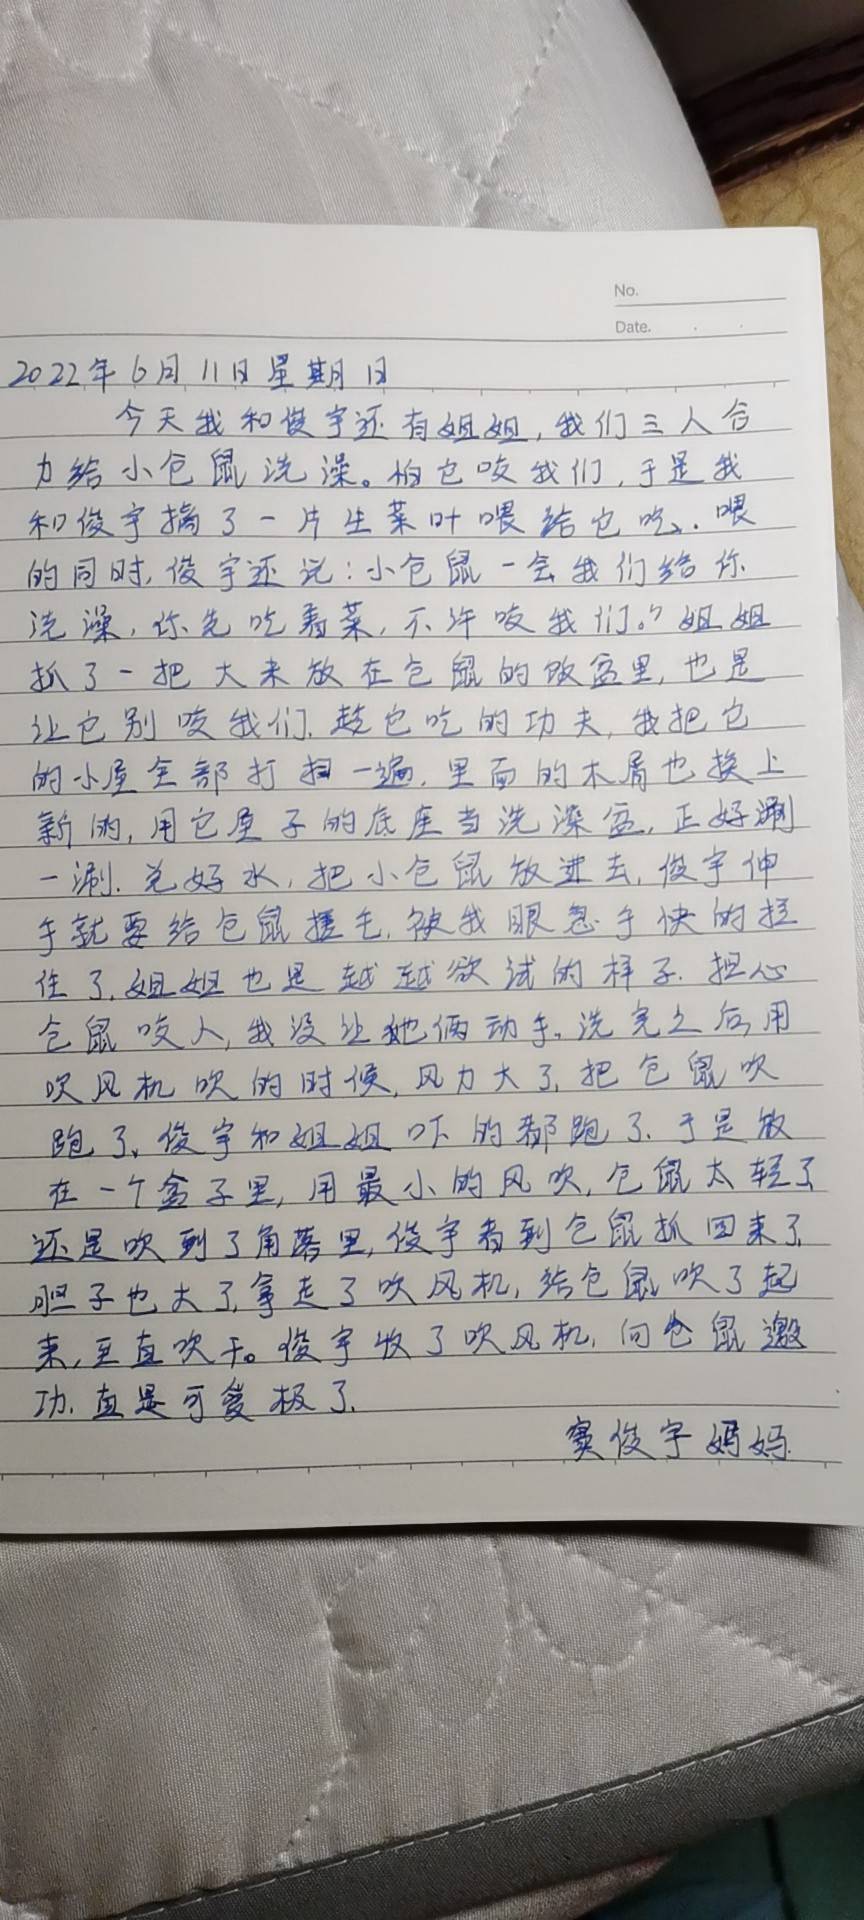 No.
Date.
2022年6月11日星期日
今天我和俊宇还有姐姐,我们三人合
力给小仓鼠洗澡。怕它咬我们,于是我
和俊宇摘了一片生菜叶喂给它吃、喂
的同时,俊宇还说:小仓鼠一会我们给你
洗澡,你先吃着菜,不许咬我们。”姐姐
抓了一把大米放在仓鼠的饭盆里,也是
让它别咬我们,趁它吃的功夫,我把它
的小屋全部打扫一遍,里面的木屑也换上
新的,用它屋子的底座当洗澡盆,正好涮
一涮.兑好水,把小仓鼠放进去,俊宇伸
手就要给仓鼠搓毛,被我眼急手快的拦
住了,姐姐也是越越欲试的样子.担心
仓鼠咬人,我没让她俩动手。洗完之后,用
吹风机吹的时候,风力大了,把仓鼠吹
跑了,俊宇和姐姐吓的都跑了.于是放
在一个盒子里,用最小的风吹,仓鼠太轻了
还是吹到了角落里,俊宇看到仓鼠抓回来了
胆子也大了,拿走了吹风机,给仓鼠吹了起
来,至直吹干。俊宇收了吹风机,向仓鼠邀
功.直是可爱极了.
窦俊宇妈妈